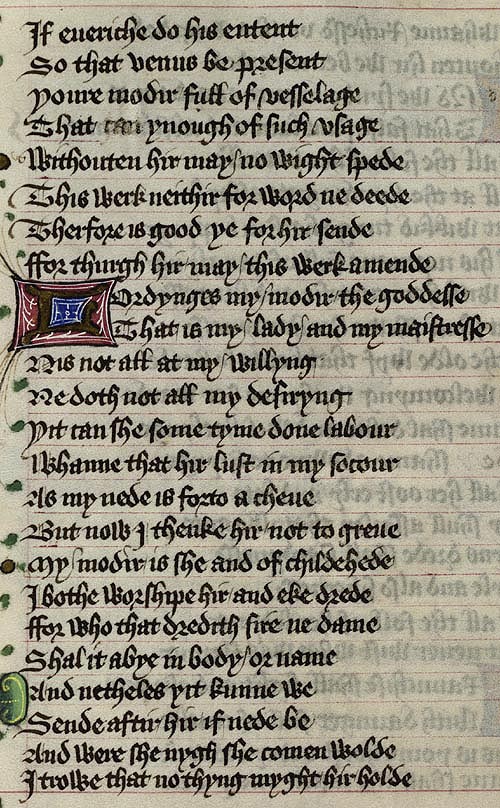 If eueriche do his entent
So that venus be present
Youre modir full of vesselage
That can ynough of such vsage
Withouten hir may no wight spede
This werk neithir for word ne deede
Therfore is good ye for hir sende
ffor thurgh hir may this werk amende
Lordynges my modir the goddesse
That is my lady and my maistresse
Nis not all at my willyng
Ne doth not all my desiryng
Yit can she some tyme done labour
Whanne that hir lust in my socour
As my nede is forto a cheue
But now I thenke hir not to greue
My modir is she and of childehede
I bothe worshipe hir and eke drede
ffor who that dredith sire ne dame
Shal it abye in body or name
And netheles yit kunne we
Sende aftir hir if nede be
And were she nygh she comen wolde
I trowe that no thyng myght hir holde